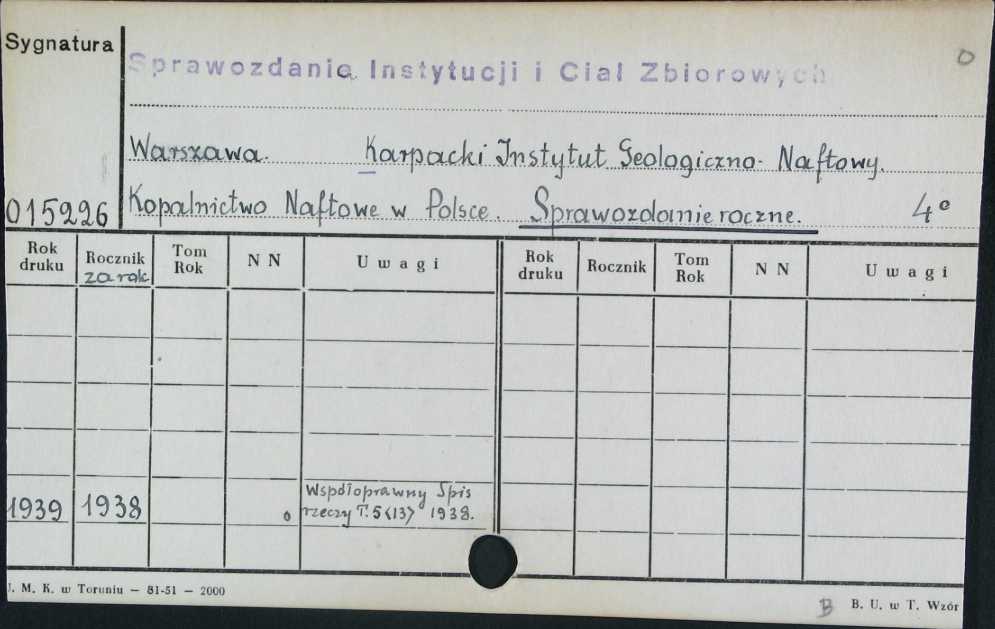 Sygnatura
Sprawozdania Instytucji i Ciał Zbiorowych
0
Warszawa. Karpacki Instytut Geologiczno-Naftowy.
015226 Kopalnictwo Naftowe w Polsce. Sprawozdanie roczne. 4º
Rok druku Rocznik za rok Tom Rok N N Uwagi Rok druku Rocznik Tom Rok N N Uwagi
1939 1938 0 Współoprawny Spis
rzeczy T. 5 <13> 1938.
U. M. K. w Toruniu — 81-51 — 2000
B B. U. w T. Wzór